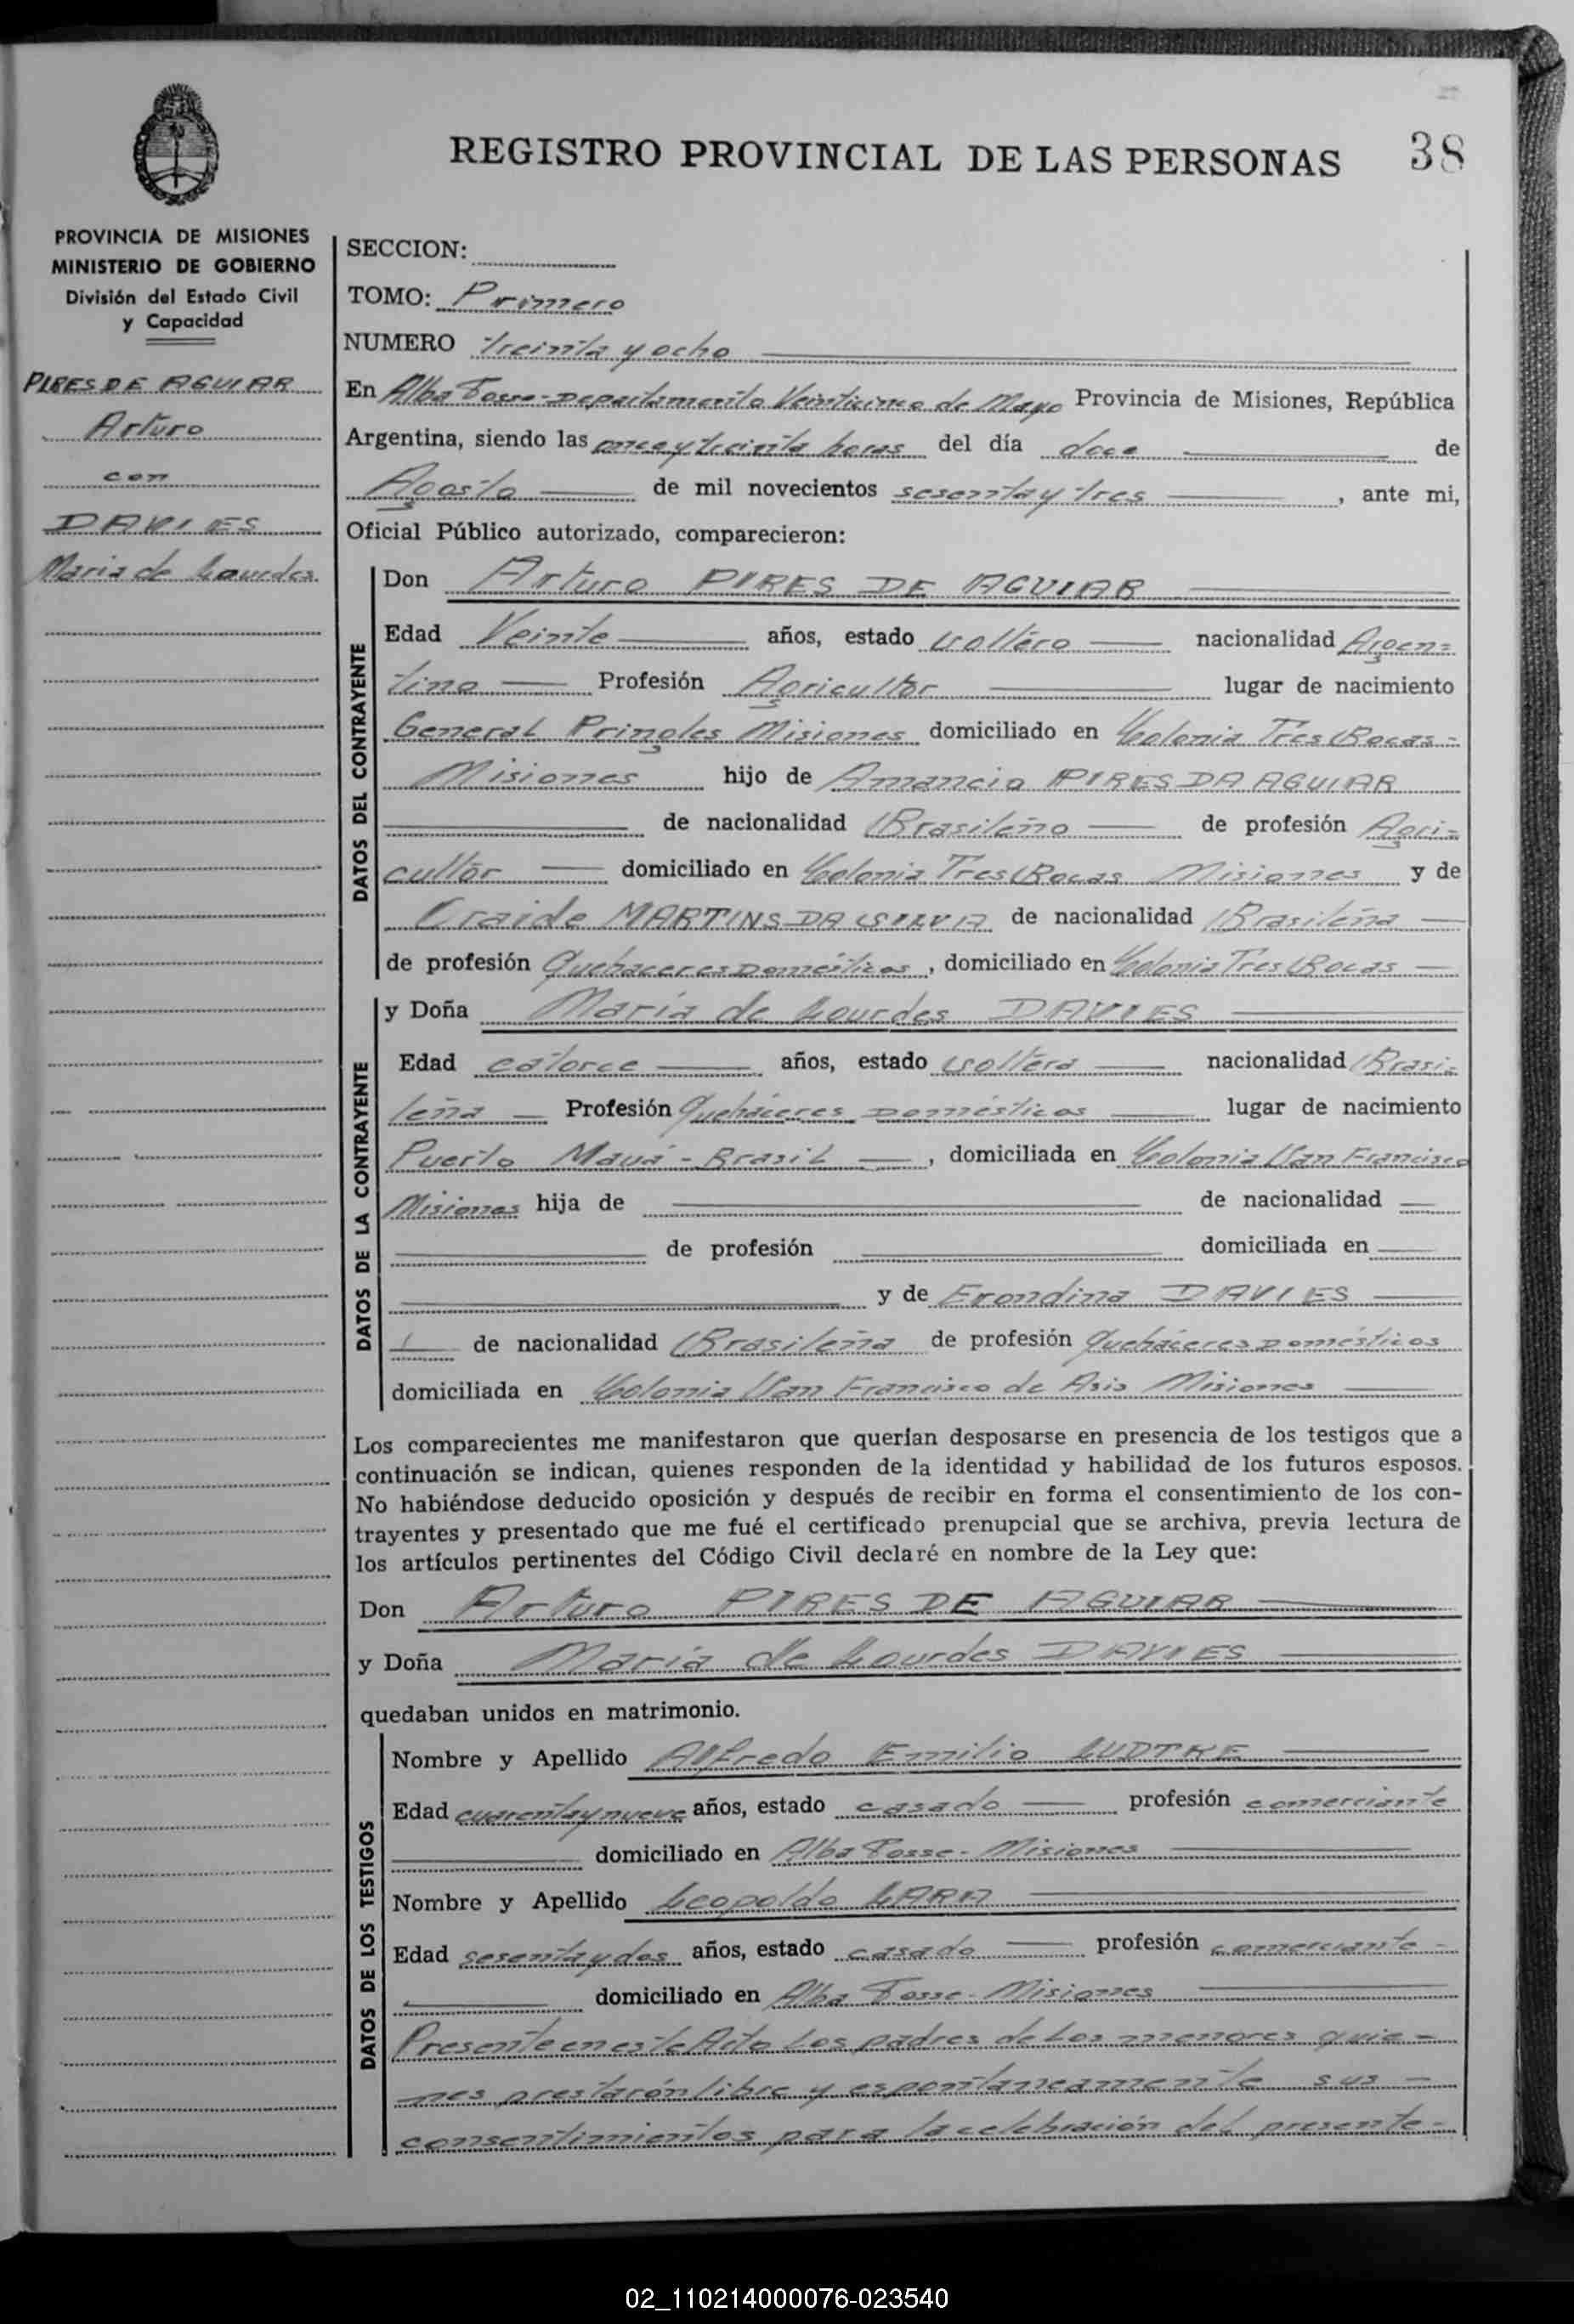 REGISTRO PROVINCIAL DE LAS PERSONAS
38
PROVINCIA DE MISIONES
MINISTERIO DE GOBIERNO
División del Estado Civil
y Capacidad
PIRES DE AGUIAR
Arturo
con
DAVIES
Maria de Lourdes
SECCION:
TOMO: Primero
NUMERO treinta y ocho
En Alba Posse - Departamento Veinticinco de Mayo Provincia de Misiones, República
Argentina, siendo las once y treinta horas del día doce de
Agosto de mil novecientos sesenta y tres, ante mi,
Oficial Público autorizado, comparecieron:
DATOS DEL CONTRAYENTE
Don Arturo PIRES DE AGUIAR
Edad Veinte años, estado soltero nacionalidad Argen=
tino Profesión Agricultor lugar de nacimiento
General Pringles Misiones domiciliado en Colonia Tres Bocas -
Misiones hijo de Amancio PIRES DA AGUIAR
de nacionalidad Brasileño de profesión Agri=
cultor domiciliado en Colonia Tres Bocas Misiones y de
MARTINS DA SILVIA de nacionalidad Brasileña
de profesión Quehaceres Domésticos, domiciliado en Colonia Tres Bocas
DATOS DE LA CONTRAYENTE
y Doña María de Lourdes DAVIES
Edad catorce años, estado soltera nacionalidad Brasi=
leña Profesión Quehaceres Domésticos lugar de nacimiento
Puerto Mauá - Brasil, domiciliada en Colonia San Francisco
Misiones hija de de nacionalidad
de profesión domiciliada en
y de Erondina DAVIES
de nacionalidad Brasileña de profesión Quehaceres Domésticos
domiciliada en Colonia San Francisco de Asis Misiones
Los comparecientes me manifestaron que querían desposarse en presencia de los testigos que a
continuación se indican, quienes responden de la identidad y habilidad de los futuros esposos.
No habiéndose deducido oposición y después de recibir en forma el consentimiento de los con-
trayentes y presentado que me fué el certificado prenupcial que se archiva, previa lectura de
los artículos pertinentes del Código Civil declaré en nombre de la Ley que:
Don Arturo PIRES DE AGUIAR
y Doña María de Lourdes DAVIES
quedaban unidos en matrimonio.
DATOS DE LOS TESTIGOS
Nombre y Apellido Alfredo Emilio LUDTKE
Edad cuarenta y nueve años, estado casado profesión comerciante
domiciliado en Alba Posse - Misiones
Nombre y Apellido Leopoldo LARA
Edad sesenta y dos años, estado casado profesión comerciante -
domiciliado en Alba Posse - Misiones
Presente en este Acto los padres de los menores quie -
nes prestarón libre y espontaneamente sus -
consentimientos para la celebración del presente -
02_110214000076-023540